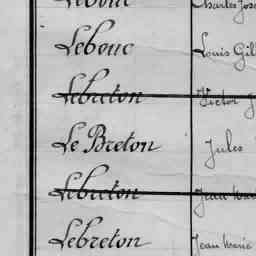 Lebouc Charles Jos
Lebouc Louis Gil
Lebreton Victor J
Le Breton Jules
Lebreton Jean Marie
Lebreton Jean Marie